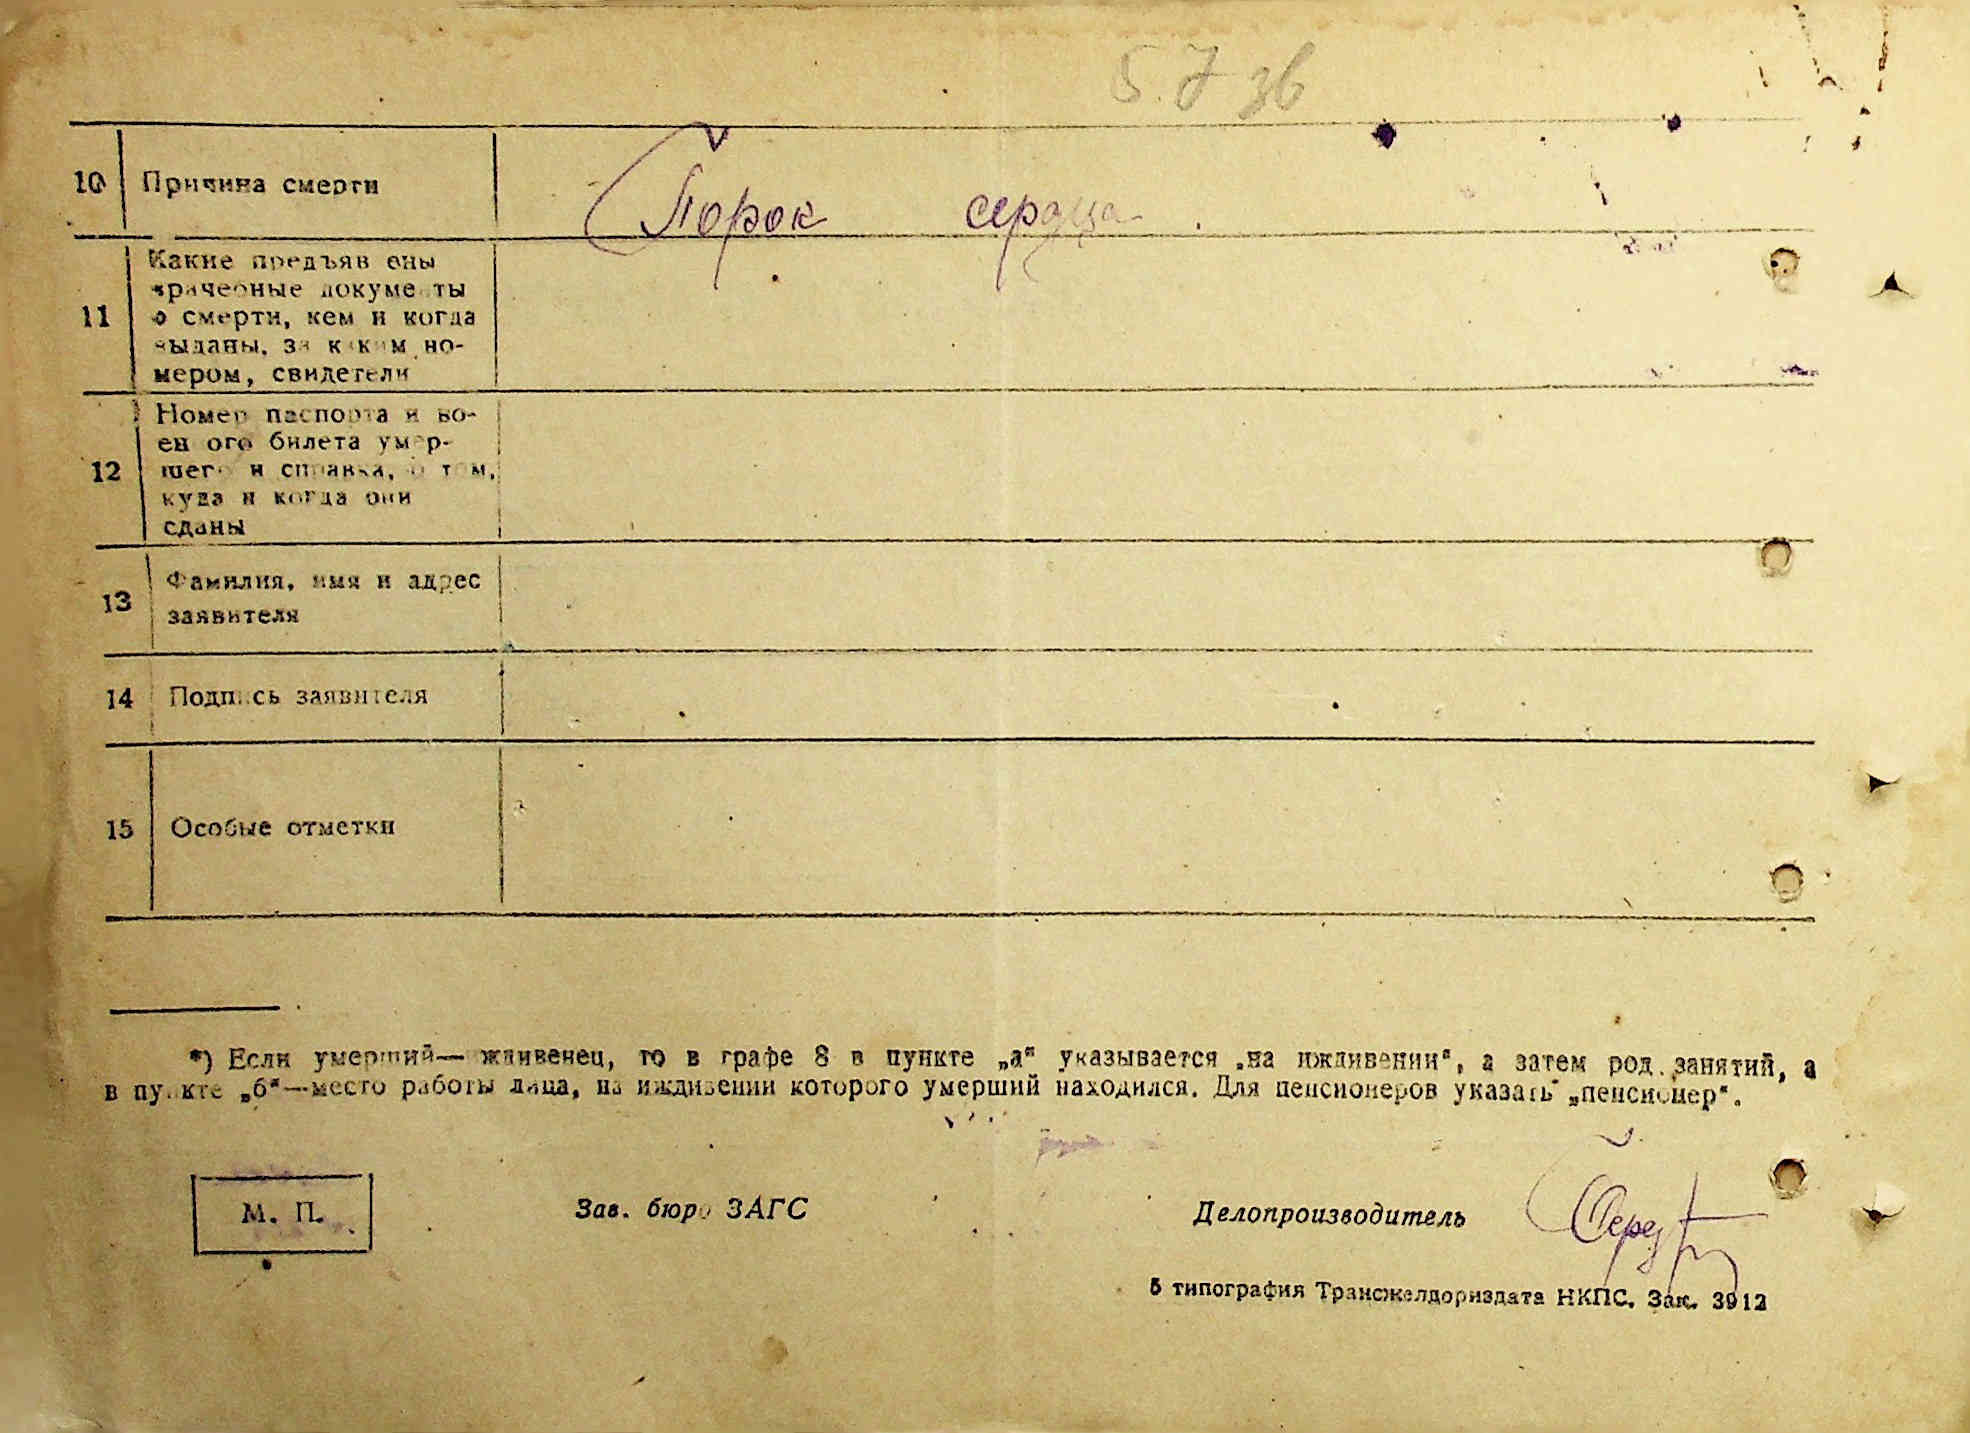 5.7 36
10 Причина смерти Порок сердца.
11 Какие предъяв ены
врачебные документы
о смерти, кем и когда
выданы, за каким но-
мером, свидетели
12 Номер паспорта и во-
ен ого билета умер-
шего и справка, о том,
куда и когда они
сданы
13 Фамилия, имя и адрес
заявителя
14 Подпись заявителя
15 Особые отметки
*) Если умерший— ждивенец, то в графе 8 в пункте „а“ указывается „на иждивении“, а затем род занятий, а
в пункте „б“—место работы лица, на иждивении которого умерший находился. Для пенсионеров указать „пенсионер“.
М. П.
Зав. бюро ЗАГС
Делопроизводитель
5 типография Трансжелдориздата НКПС. Зак. 3912